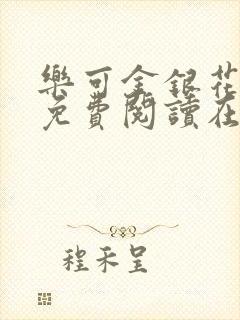 樂可金銀花
免費閱讀在
程禾呈